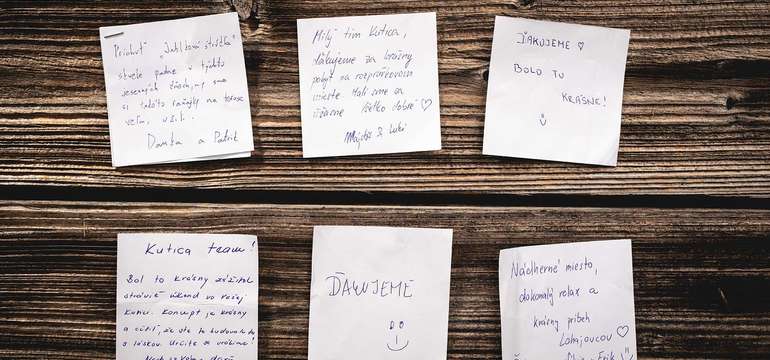 Príchuť „Jablková štrúdľa"
skvele padne v týchto
jesenných dňoch, my sme
si takéto raňajky na terase
veľmi užili.
Danka a Patrik
Milý tím Kutica,
ďakujeme za krásny
pobyt na rozprávkovom
mieste. Mali sme sa
úžasne. Všetko dobré ♡
Majka & Luki
ĎAKUJEME ♡
BOLO TU
KRÁSNE!
Kutica team!
Bol to krásny zážitok
stráviť víkend vo vašej
Kutici. Koncept je krásny
a cítiť, že ste to budovali
s láskou. Určite sa vrátime!
ĎAKUJEME
Nádherné miesto,
dokonalý relax a
krásny príbeh
Lomajoucou ♡